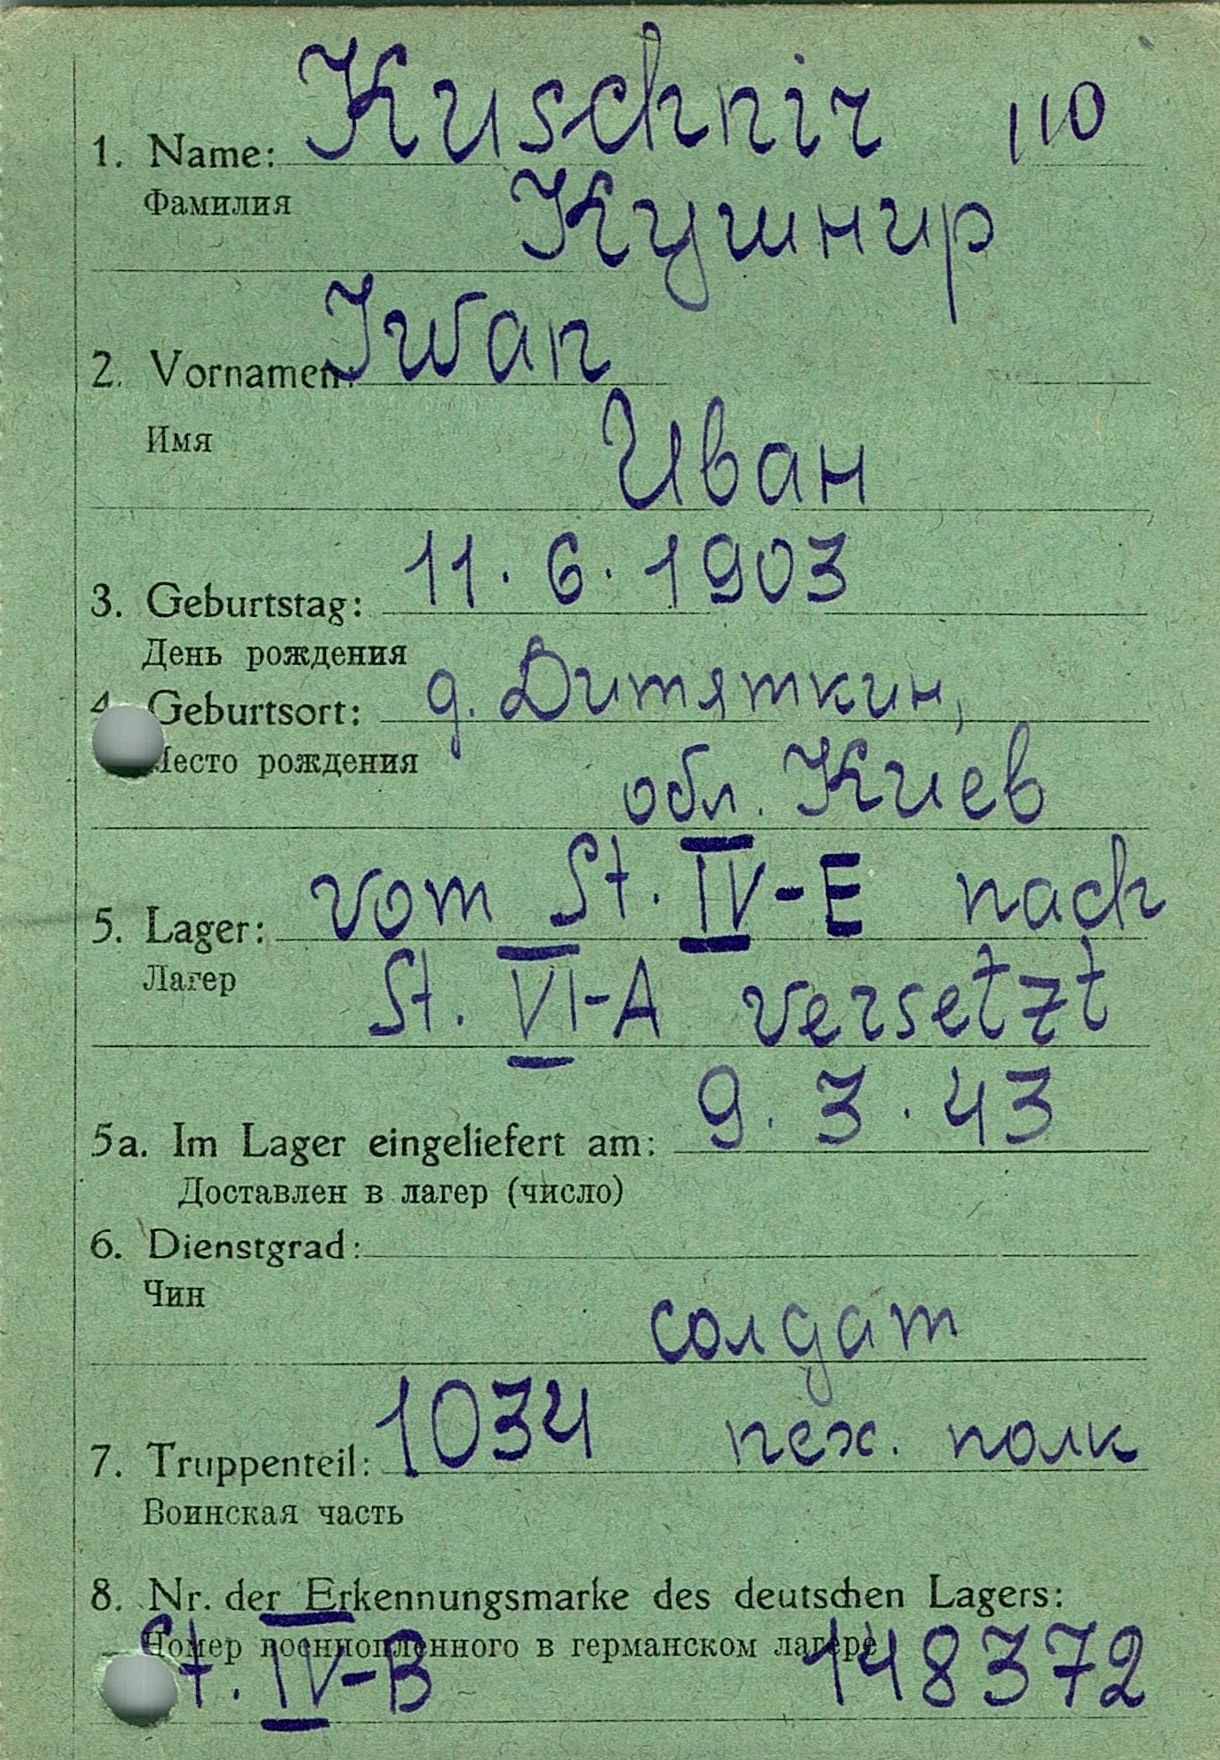 Kuschnir 110
1. Name:
Фамилия
Кушнир
Iwan
2. Vornamen:
Имя
Иван
3. Geburtstag: 11.6.1903
День рождения
4. Geburtsort: д. Дитяткин,
Место рождения
обл. Киев
5. Lager: vom St. IV-E nach
Лагер
St. VI-A versetzt
5a. Im Lager eingeliefert am: 9.3.43
Доставлен в лагер (число)
6. Dienstgrad:
Чин
солдат
7. Truppenteil: 1034 пех. полк
Воинская часть
8. Nr. der Erkennungsmarke des deutschen Lagers:
Номер военнопленного в германском лагере
St. IV-B 148372